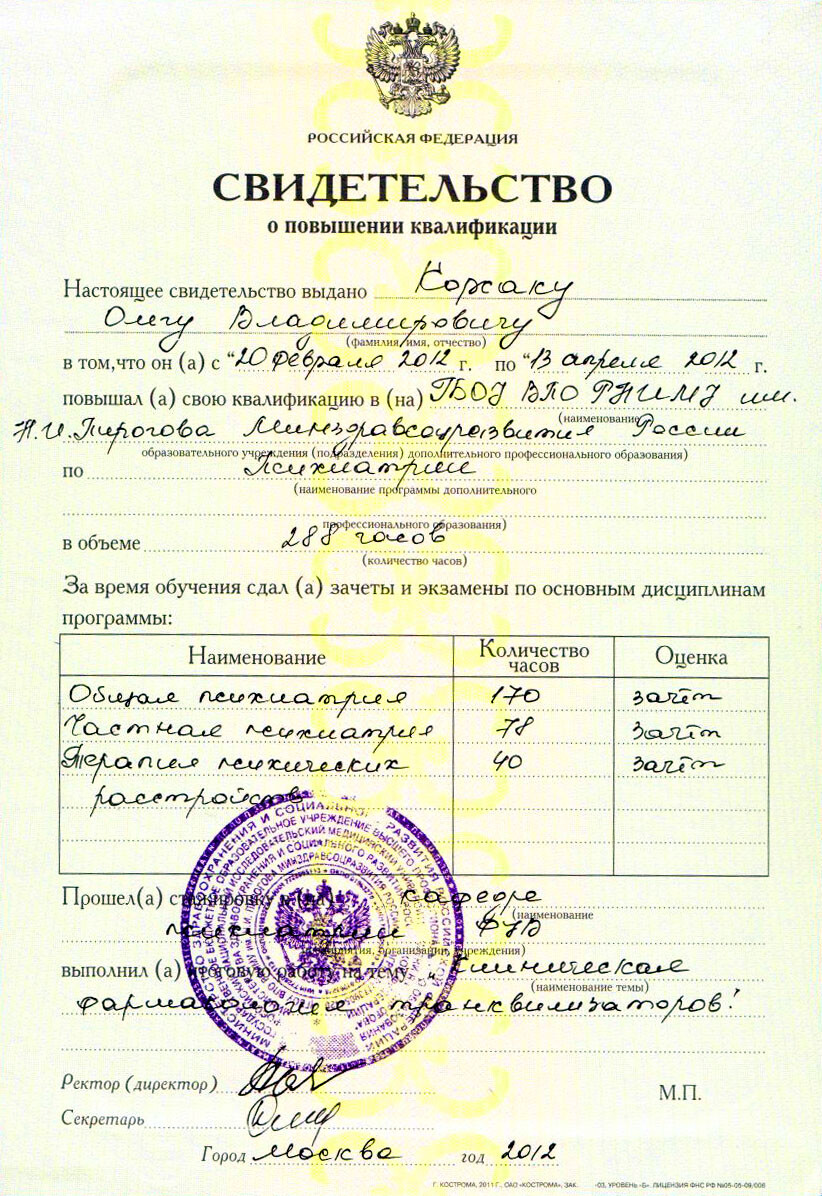 РОССИЙСКАЯ ФЕДЕРАЦИЯ
СВИДЕТЕЛЬСТВО
о повышении квалификации
Настоящее свидетельство выдано Корсаку
Олегу Владимировичу
(фамилия, имя, отчество)
в том,что он (а) с "20 февраля 2012 г. по "13 апреля 2012 г.
повышал (а) свою квалификацию в (на) ГБОУ ВПО РНИМУ им.
(наименование
Н.И.Пирогова Минздравсоцразвития России
образовательного учреждения (подразделения) дополнительного профессионального образования)
по Психиатрии
(наименование программы дополнительного
профессионального образования)
в объеме 288 часов
(количество часов)
За время обучения сдал (а) зачеты и экзамены по основным дисциплинам
программы:
Наименование Количество часов Оценка
Общая психиатрия 170 зачёт
Частная психиатрия 78 зачёт
Терапия психических 40 зачёт
расстройств
Прошел(а) стажировку в (на) кафедре
(наименование
психиатрии ФУВ
предприятия, организации, учреждения)
выполнил (а) итоговую работу на тему „Клиническая
(наименование темы)
фармакология транквилизаторов"
Ректор (директор)
М.П.
Секретарь
Город Москва год 2012
Г. КОСТРОМА, 2011 Г., ОАО «КОСТРОМА», ЗАК. -03, УРОВЕНЬ «Б», ЛИЦЕНЗИЯ ФНС РФ №05-05-09/006